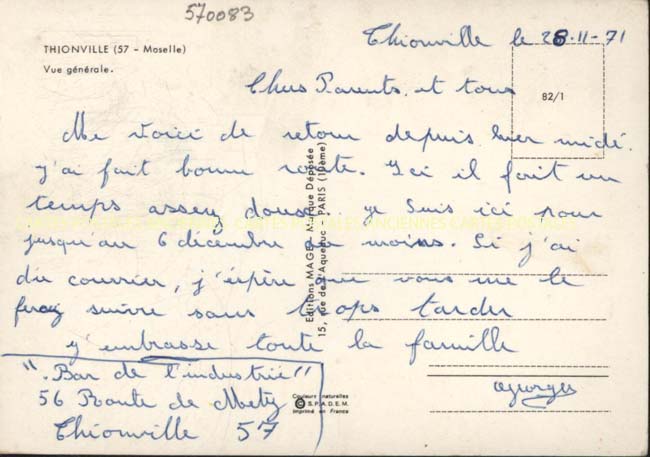 570083
THIONVILLE (57 - Moselle)
Vue générale.
82/1
Thionville le 28-11-71
Chers Parents et tous
Me voici de retour depuis hier midi
j'ai fait bonne route. Ici il fait un
temps assez doux. je suis ici pour
jusqu'au 6 décembre au moins. Si j'ai
du courrier, j'éspère que vous me le
ferez suivre sans trops tarder
j'embrasse toute la famille
Georges
". Bar de l'industrie"
56 Route de Metz
Thionville 57
Editions MAGE - Marque Déposée
15, rue de l'Aqueduc - PARIS (10ème)
Couleurs naturelles
© S.P.A.D.E.M.
Imprimé en France